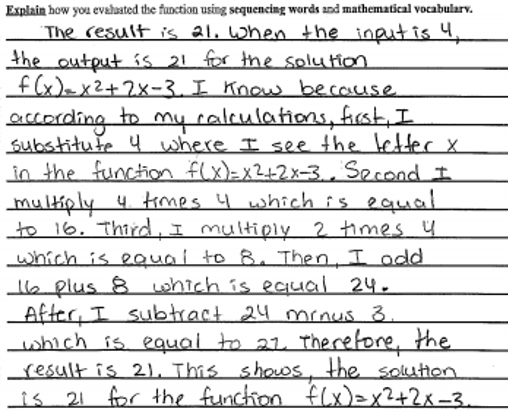 Explain how you evaluated the function using sequencing words and mathematical vocabulary.
The result is 21. When the input is 4,
the output is 21 for the solution
f(x)=x2+2x-3. I know because
according to my calculations, first, I
substitute 4 where I see the letter x
in the function f(x)=x2+2x-3. Second I
multiply 4 times 4 which is equal
to 16. Third, I multiply 2 times 4
which is equal to 8. Then, I add
16 plus 8 which is equal 24.
After, I subtract 24 minus 3.
which is equal to 21. Therefore, the
result is 21. This shows, the solution
is 21 for the function f(x)=x2+2x-3.